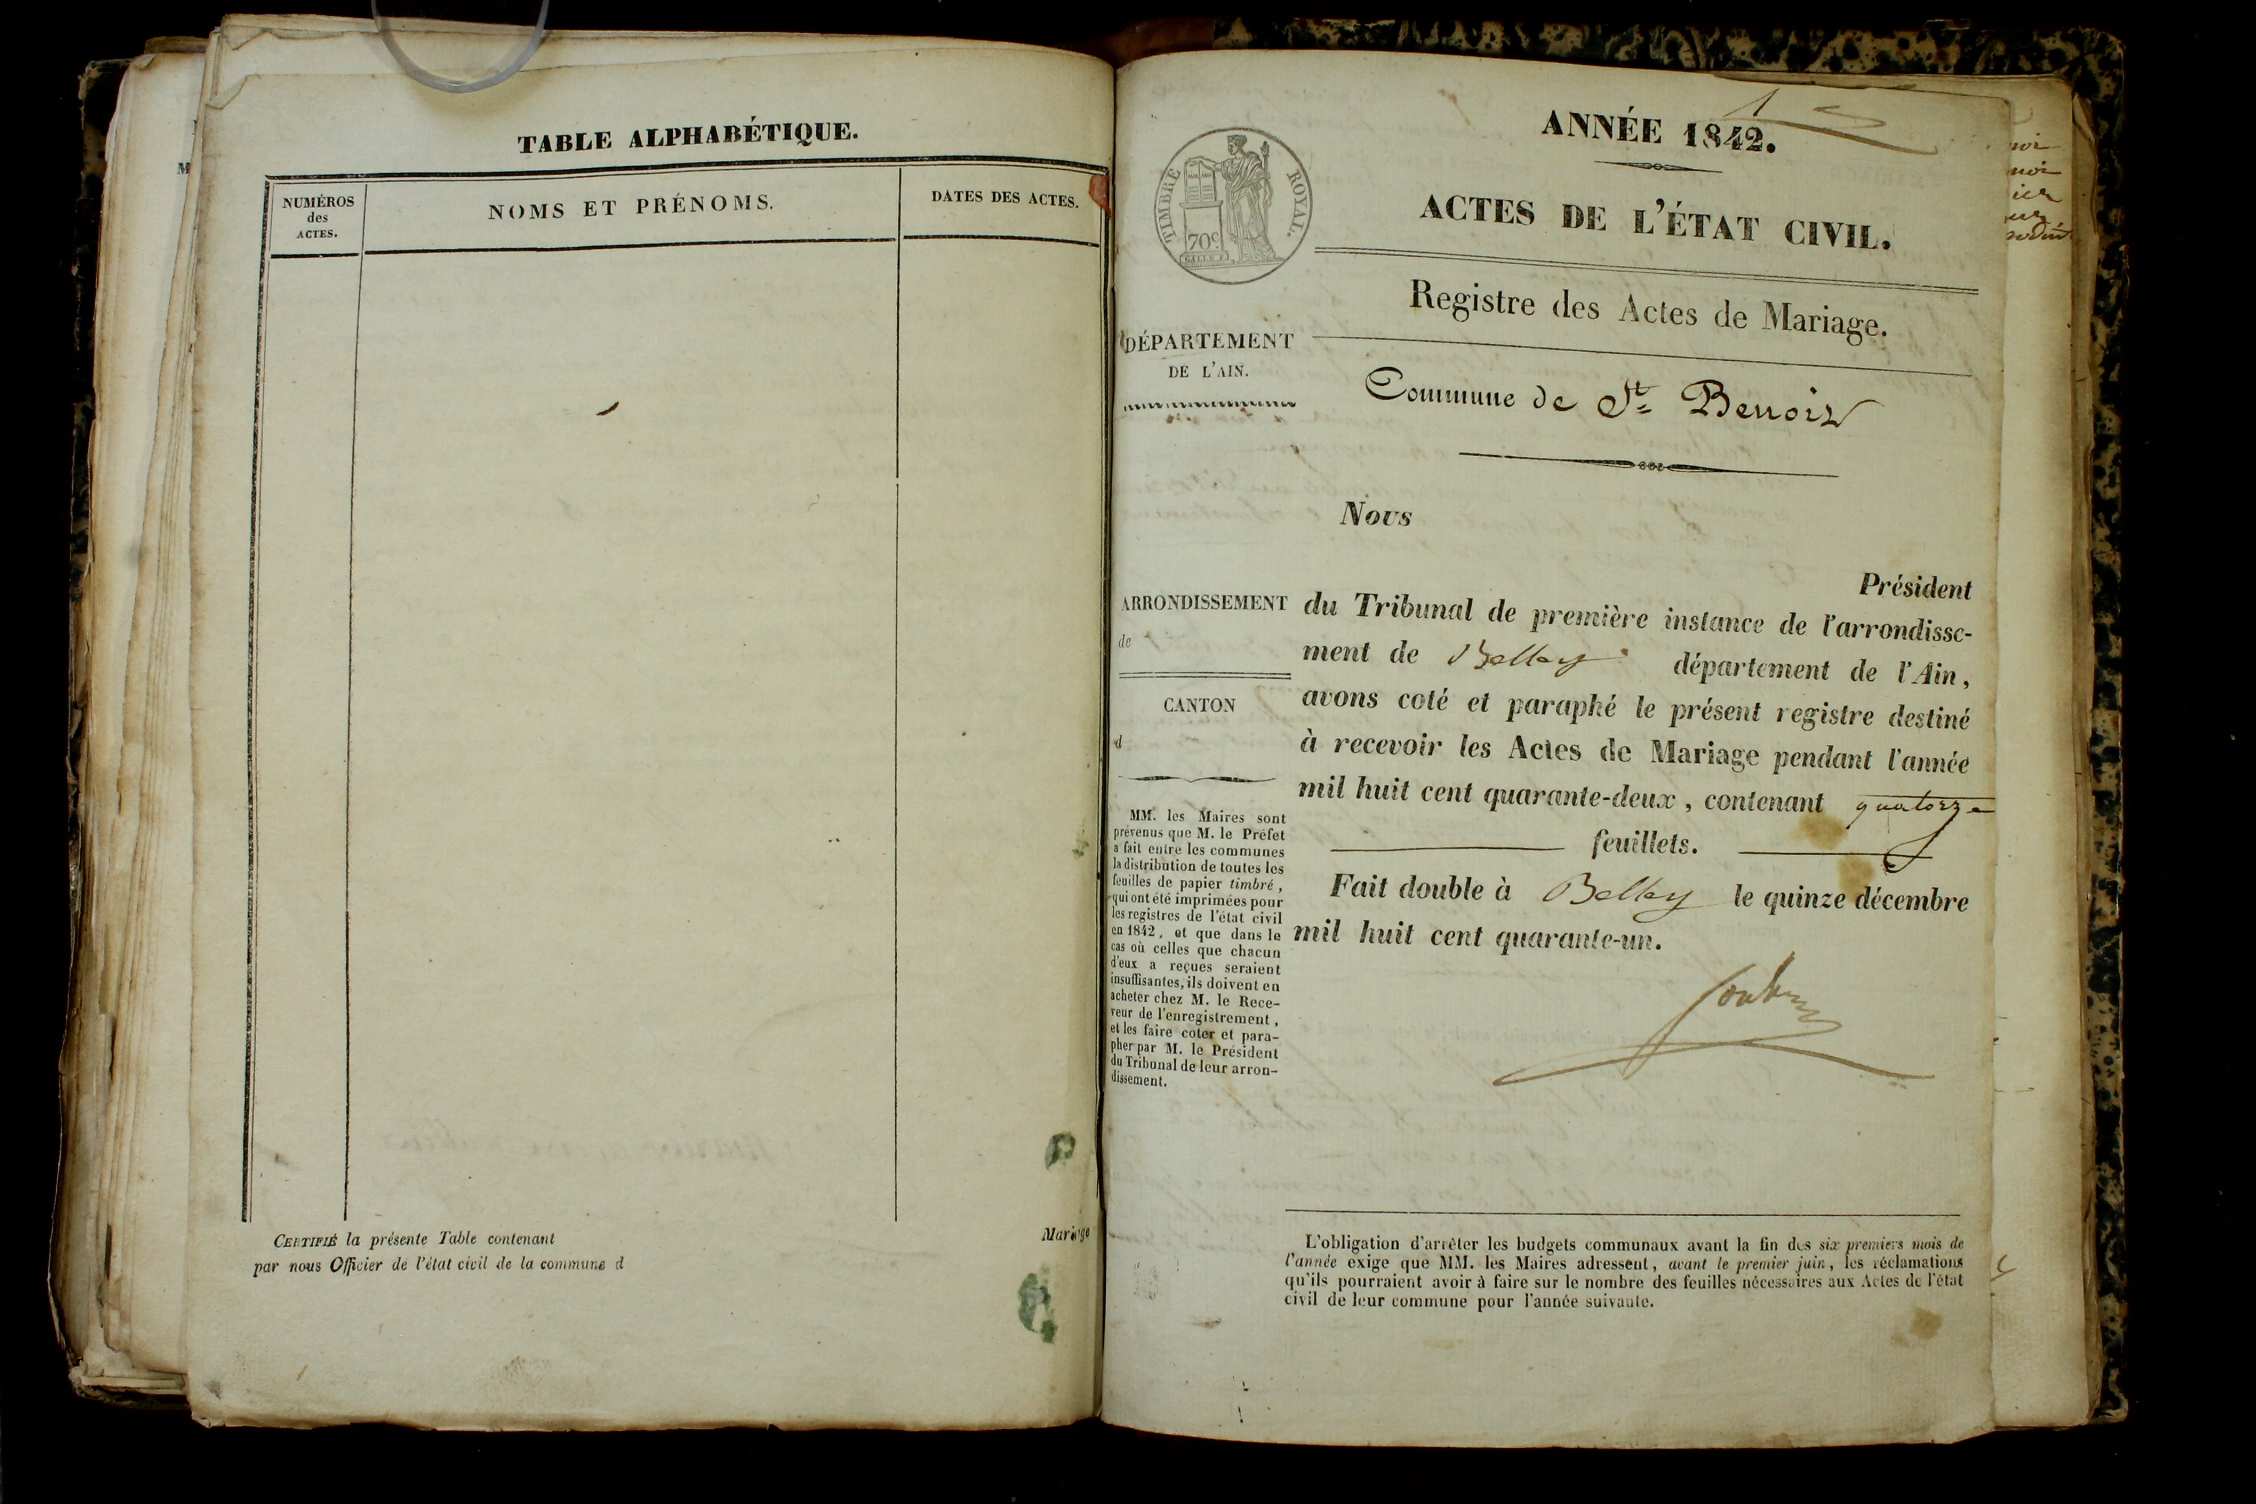 TABLE ALPHABÉTIQUE.
NUMÉROS
des
ACTES.
NOMS ET PRÉNOMS.
DATES DES ACTES.
CERTIFIÉ la présente Table contenant
Mariage
par nous Officier de l'état civil de la commune d
ANNÉE 1842.
TIMBRE ROYAL.
70c
ACTES DE L'ÉTAT CIVIL.
Registre des Actes de Mariage.
DÉPARTEMENT
DE L'AIN.
Commune de St Benoit
Nous
Président
ARRONDISSEMENT
de
CANTON
d
du Tribunal de première instance de l'arrondisse-
ment de Belley département de l'Ain,
avons coté et paraphé le présent registre destiné
à recevoir les Actes de Mariage pendant l'année
mil huit cent quarante-deux, contenant quatorze
feuillets.
Fait double à Belley le quinze décembre
mil huit cent quarante-un.
MM. les Maires sont
prévenus que M. le Préfet
a fait entre les communes
la distribution de toutes les
feuilles de papier timbré,
qui ont été imprimées pour
les registres de l'état civil
en 1842, et que dans le
cas où celles que chacun
d'eux a reçues seraient
insuffisantes, ils doivent en
acheter chez M. le Rece-
veur de l'enregistrement,
et les faire coter et para-
pher par M. le Président
du Tribunal de leur arron-
dissement.
L'obligation d'arrêter les budgets communaux avant la fin des six premiers mois de
l'année exige que MM. les Maires adressent, avant le premier juin, les réclamations
qu'ils pourraient avoir à faire sur le nombre des feuilles nécessaires aux Actes de l'état
civil de leur commune pour l'année suivante.